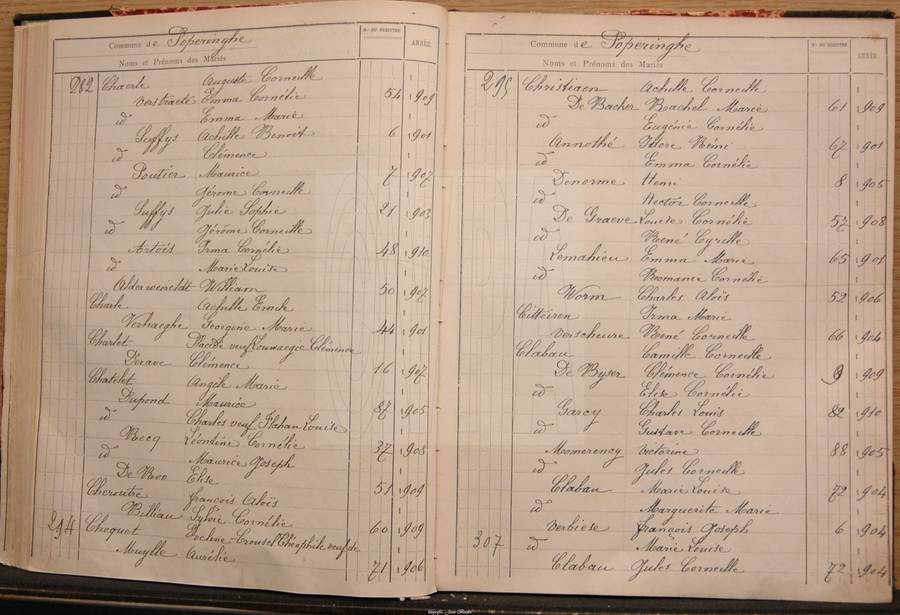 Commune de Poperinghe
Noms et Prénoms des Mariés
No DU REGISTRE
ANNÉE.
282 Chaerle Auguste Corneille
Verstraete Emma Cornélie 54 1909
id Emma Marie
Suffys Achille Benoit 6 1901
id Clémence
Poutier Maurice 7 1907
id Jérome Corneille
Suffys Julie Sophie 21 1903
id Jérôme Corneille
Artois Irma Cornélie 48 1910
id Marie Louise
Alderweireldt William 50 1907
Charle Achille Emile
Verhaeghe Georgine Marie 44 1901
Charlet Placide veuf Louwaegie Clémence
Derave Clémence 16 1907
Chatelet Angèle Marie
Dupond Maurice 87 1905
id Charles veuf Flahau Louise
Becq Léontine Cornélie 37 1903
id Maurice Joseph
De Boo Elise 51 1909
Cheroutre François Aloïs
Billiau Sylvie Cornélie 60 1909
294 Choquet Théophile veuf de
Muylle Aurélie 71 1906
Commune de Poperinghe
Noms et Prénoms des Mariés
No DU REGISTRE
ANNÉE.
295 Christiaen Achille Corneille
De Backer Rachel Marie 61 1909
id Eugénie Cornélie
Annothé Isidore Rémi 67 1901
id Emma Cornélie
Denorme Henri 8 1905
id Hector Corneille
De Graeve Louise Cornélie 57 1908
id René Cyrille
Lemahieu Emma Marie 65 1901
id Romanie Cornélie
Worm Charles Aloïs 52 1906
Citteiren Irma Marie
Verscheure René Corneille 66 1904
Clabau Camille Corneille
De Byser Clémence Cornélie 9 1909
id Elise Cornélie
Garcy Charles Louis 82 1910
id Gustave Corneille
Momerency Victorine 88 1905
id Jules Corneille
Clabau Marie Louise 72 1904
id Marguerite Marie
Verbiese François Joseph 6 1904
307 id Marie Louise
Clabau Jules Corneille 72 1904